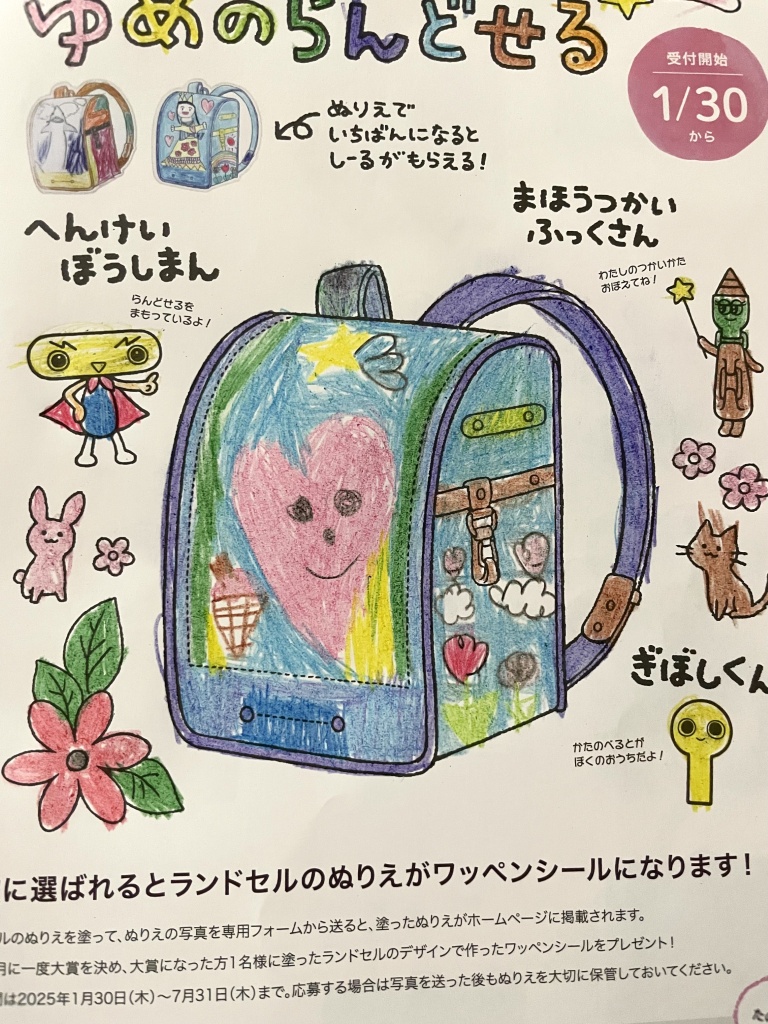 ゆめのらんどせる
受付開始
1/30
から
ぬりえで
いちばんになると
しーるがもらえる!
へんけい
ぼうしまん
らんどせるを
まもっているよ!
まほうつかい
ふっくさん
わたしのつかいかた
おぼえてね!
ぎぼしくん
かたのべるとが
ぼくのおうちだよ!
に選ばれるとランドセルのぬりえがワッペンシールになります!
ルのぬりえを塗って、ぬりえの写真を専用フォームから送ると、塗ったぬりえがホームページに掲載されます。
月に一度大賞を決め、大賞になった方1名様に塗ったランドセルのデザインで作ったワッペンシールをプレゼント!
間は2025年1月30日(木)〜7月31日(木)まで。応募する場合は写真を送った後もぬりえを大切に保管しておいてください。